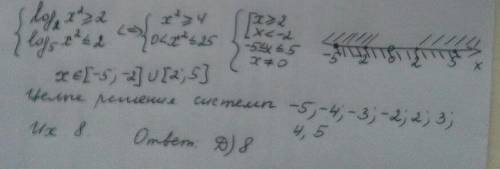 { log₂ x² ≥ 2   <=> { x² ≥ 4   { [ x ≥ 2
{ log₅ x² ≤ 2   { 0 < x² ≤ 25   [ x < -2
-5 ≤ x ≤ 5
x ≠ 0
-5 -2 0 2 5 x
x ∈ [-5; -2] ∪ [2; 5]
Целые решения системы -5; -4; -3; -2; 2; 3;
4, 5
Их 8   Ответ: Д) 8